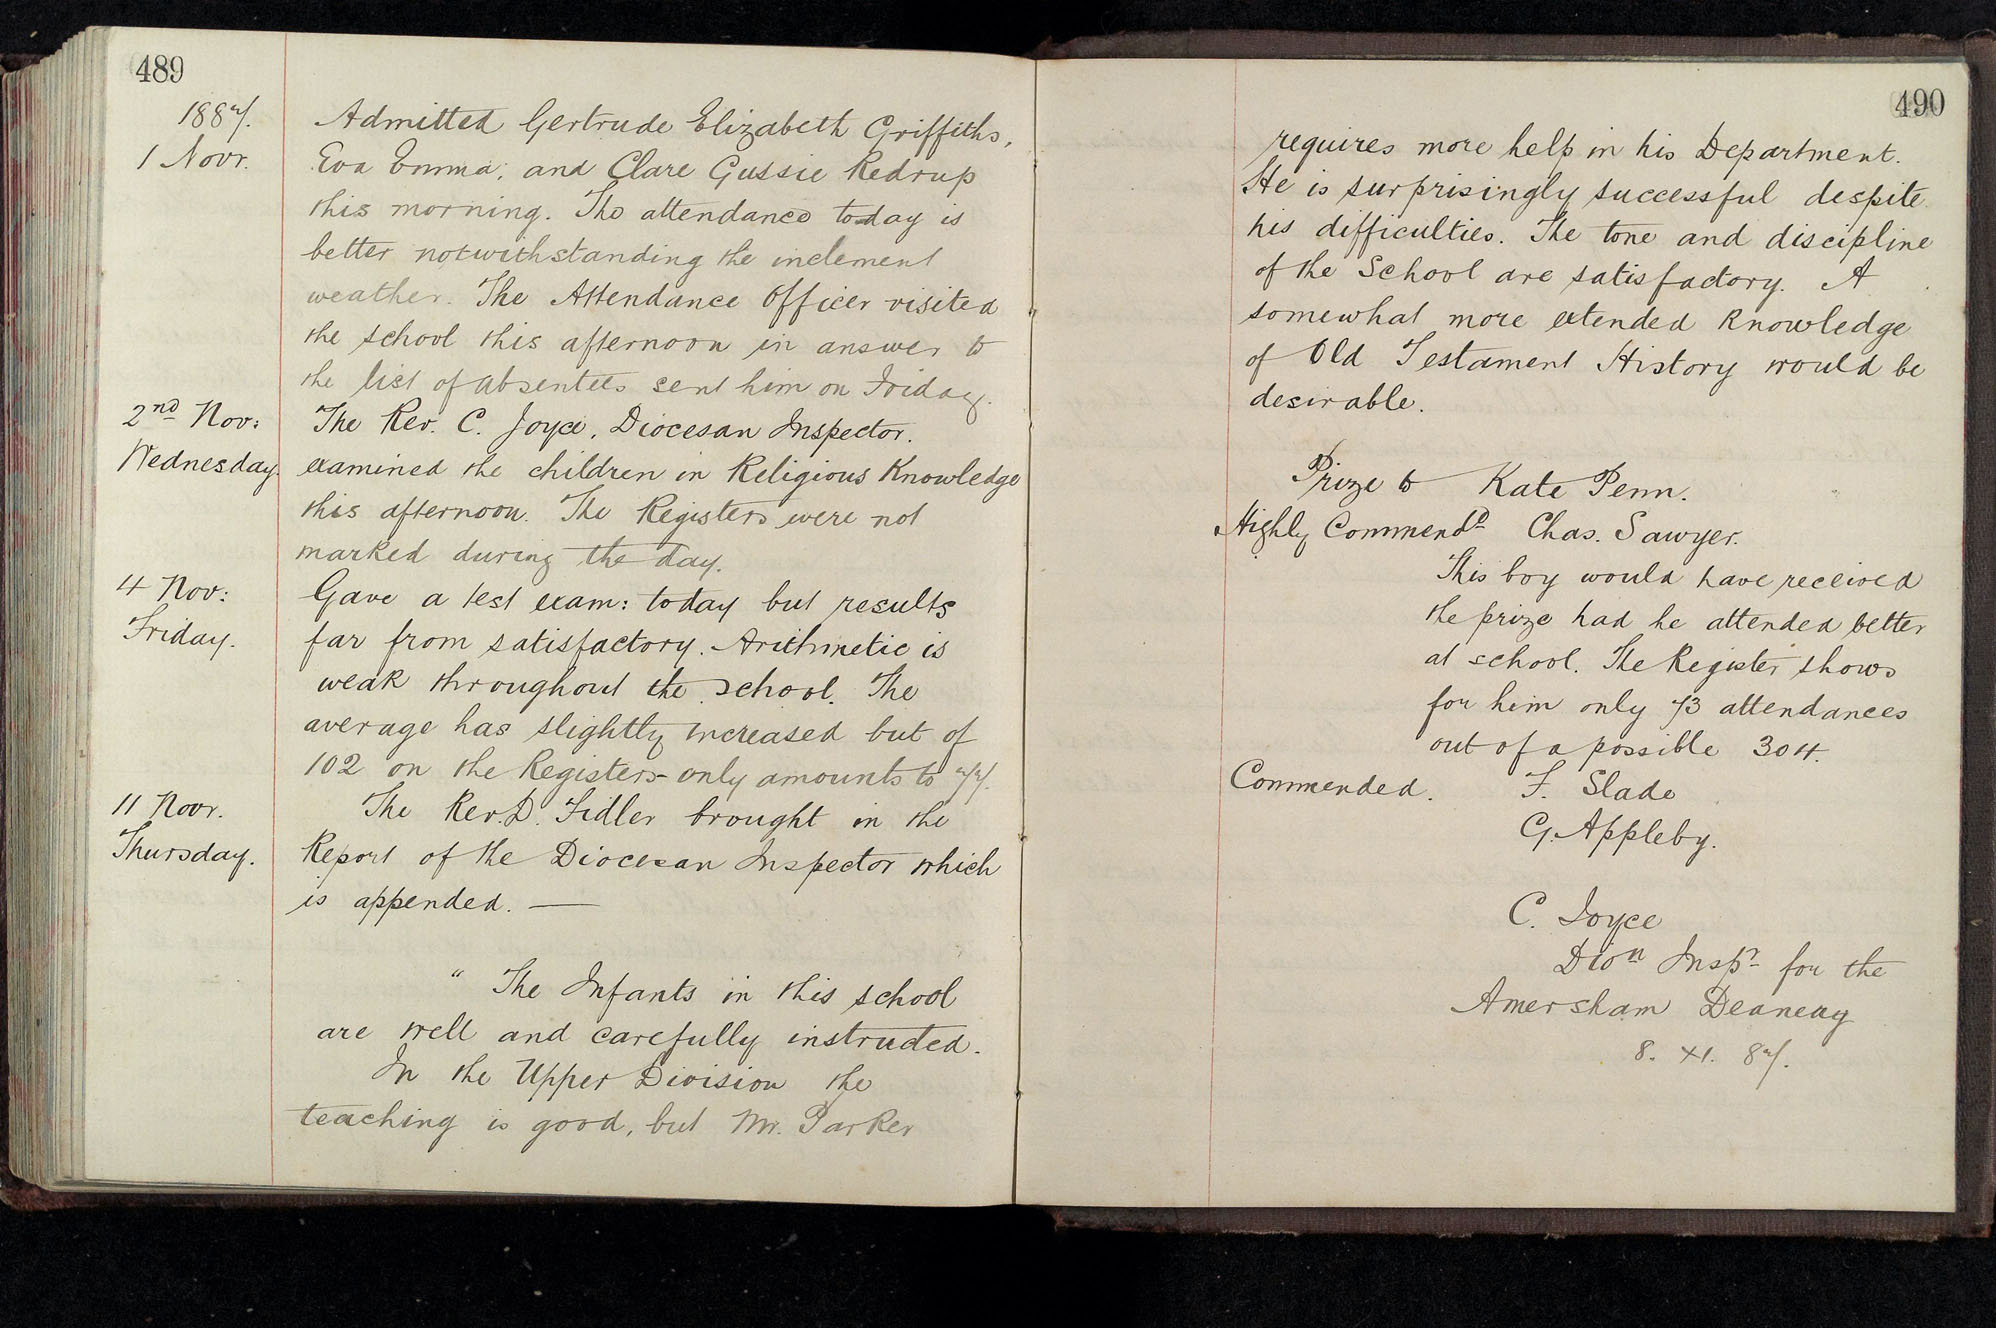 489
1887.
1 Novr.
Admitted Gertrude Elizabeth Griffiths,
Eva Emma, and Clare Gussie Redrup
this morning. The attendance today is
better notwithstanding the inclement
weather. The Attendance Officer visited
the school this afternoon in answer to
the list of absentees sent him on Friday.
2nd Nov:
Wednesday.
The Rev. C. Joyce, Diocesan Inspector.
examined the children in Religious Knowledge
this afternoon. The Registers were not
marked during the day.
4 Nov:
Friday.
Gave a test exam: today but results
far from satisfactory. Arithmetic is
weak throughout the school. The
average has slightly increased but of
102 on the Registers only amounts to 77.
11 Novr.
Thursday.
The Rev. D. Fidler brought in the
Report of the Diocesan Inspector which
is appended. —
" The Infants in this school
are well and carefully instructed.
In the Upper Division the
teaching is good, but Mr. Parker
490
requires more help in his Department.
He is surprisingly successful despite
his difficulties. The tone and discipline
of the School are satisfactory. A
somewhat more extended knowledge
of Old Testament History would be
desirable.
Prize to Kate Penn.
Highly Commendd Chas. Sawyer.
This boy would have received
the prize had he attended better
at school. The Register shows
for him only 73 attendances
out of a possible 304.
Commended. F. Slade
G. Appleby.
C. Joyce
Dion Inspr for the
Amersham Deanery
8. XI. 87.